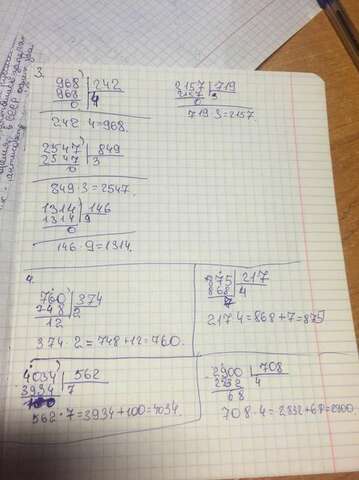 3.
968 | 242
968 | 4
0
242 · 4=968.
2157 | 719
2157 | 3
0
719·3=2157.
2547 | 849
2547 | 3
0
849·3=2547.
1314 | 146
1314 | 9
0
146·9=1314.
4.
760 | 374
748 | 2
12
374·2=748+12=760.
875 | 217
868 | 4
7
217·4=868+7=875
4034 | 562
3934 | 7
100
562·7=3934+100=4034.
2900 | 708
2832 | 4
68
708·4=2832+68=2900